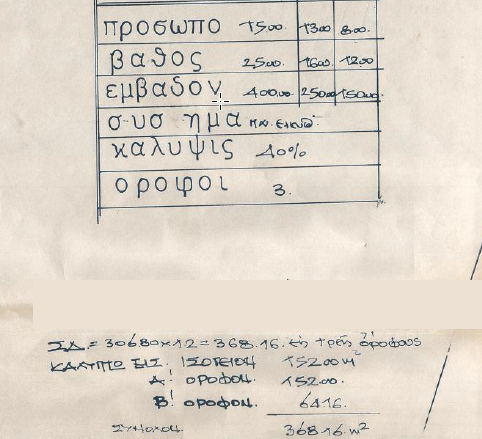 προσωπο 15.00. 13.00 8.00.
βαθος 25.00. 16.00. 12.00
εμβαδον 400.00 250.00 150.00
συστημα παν. ελευθ.
καλυψις 40%
οροφοι 3.
ΣΔ = 306.80 × 1.2 = 368.16. εις τρεις ορόφους
ΚΑΛΥΠΤΩ ΕΙΣ. ΙΣΟΓΕΙΟΝ 152.00 m²
Α! ΟΡΟΦΟΝ. 152.00.
Β! ΟΡΟΦΟΝ. 64.16.
ΣΥΝΟΛΟΝ. 368.16. m²